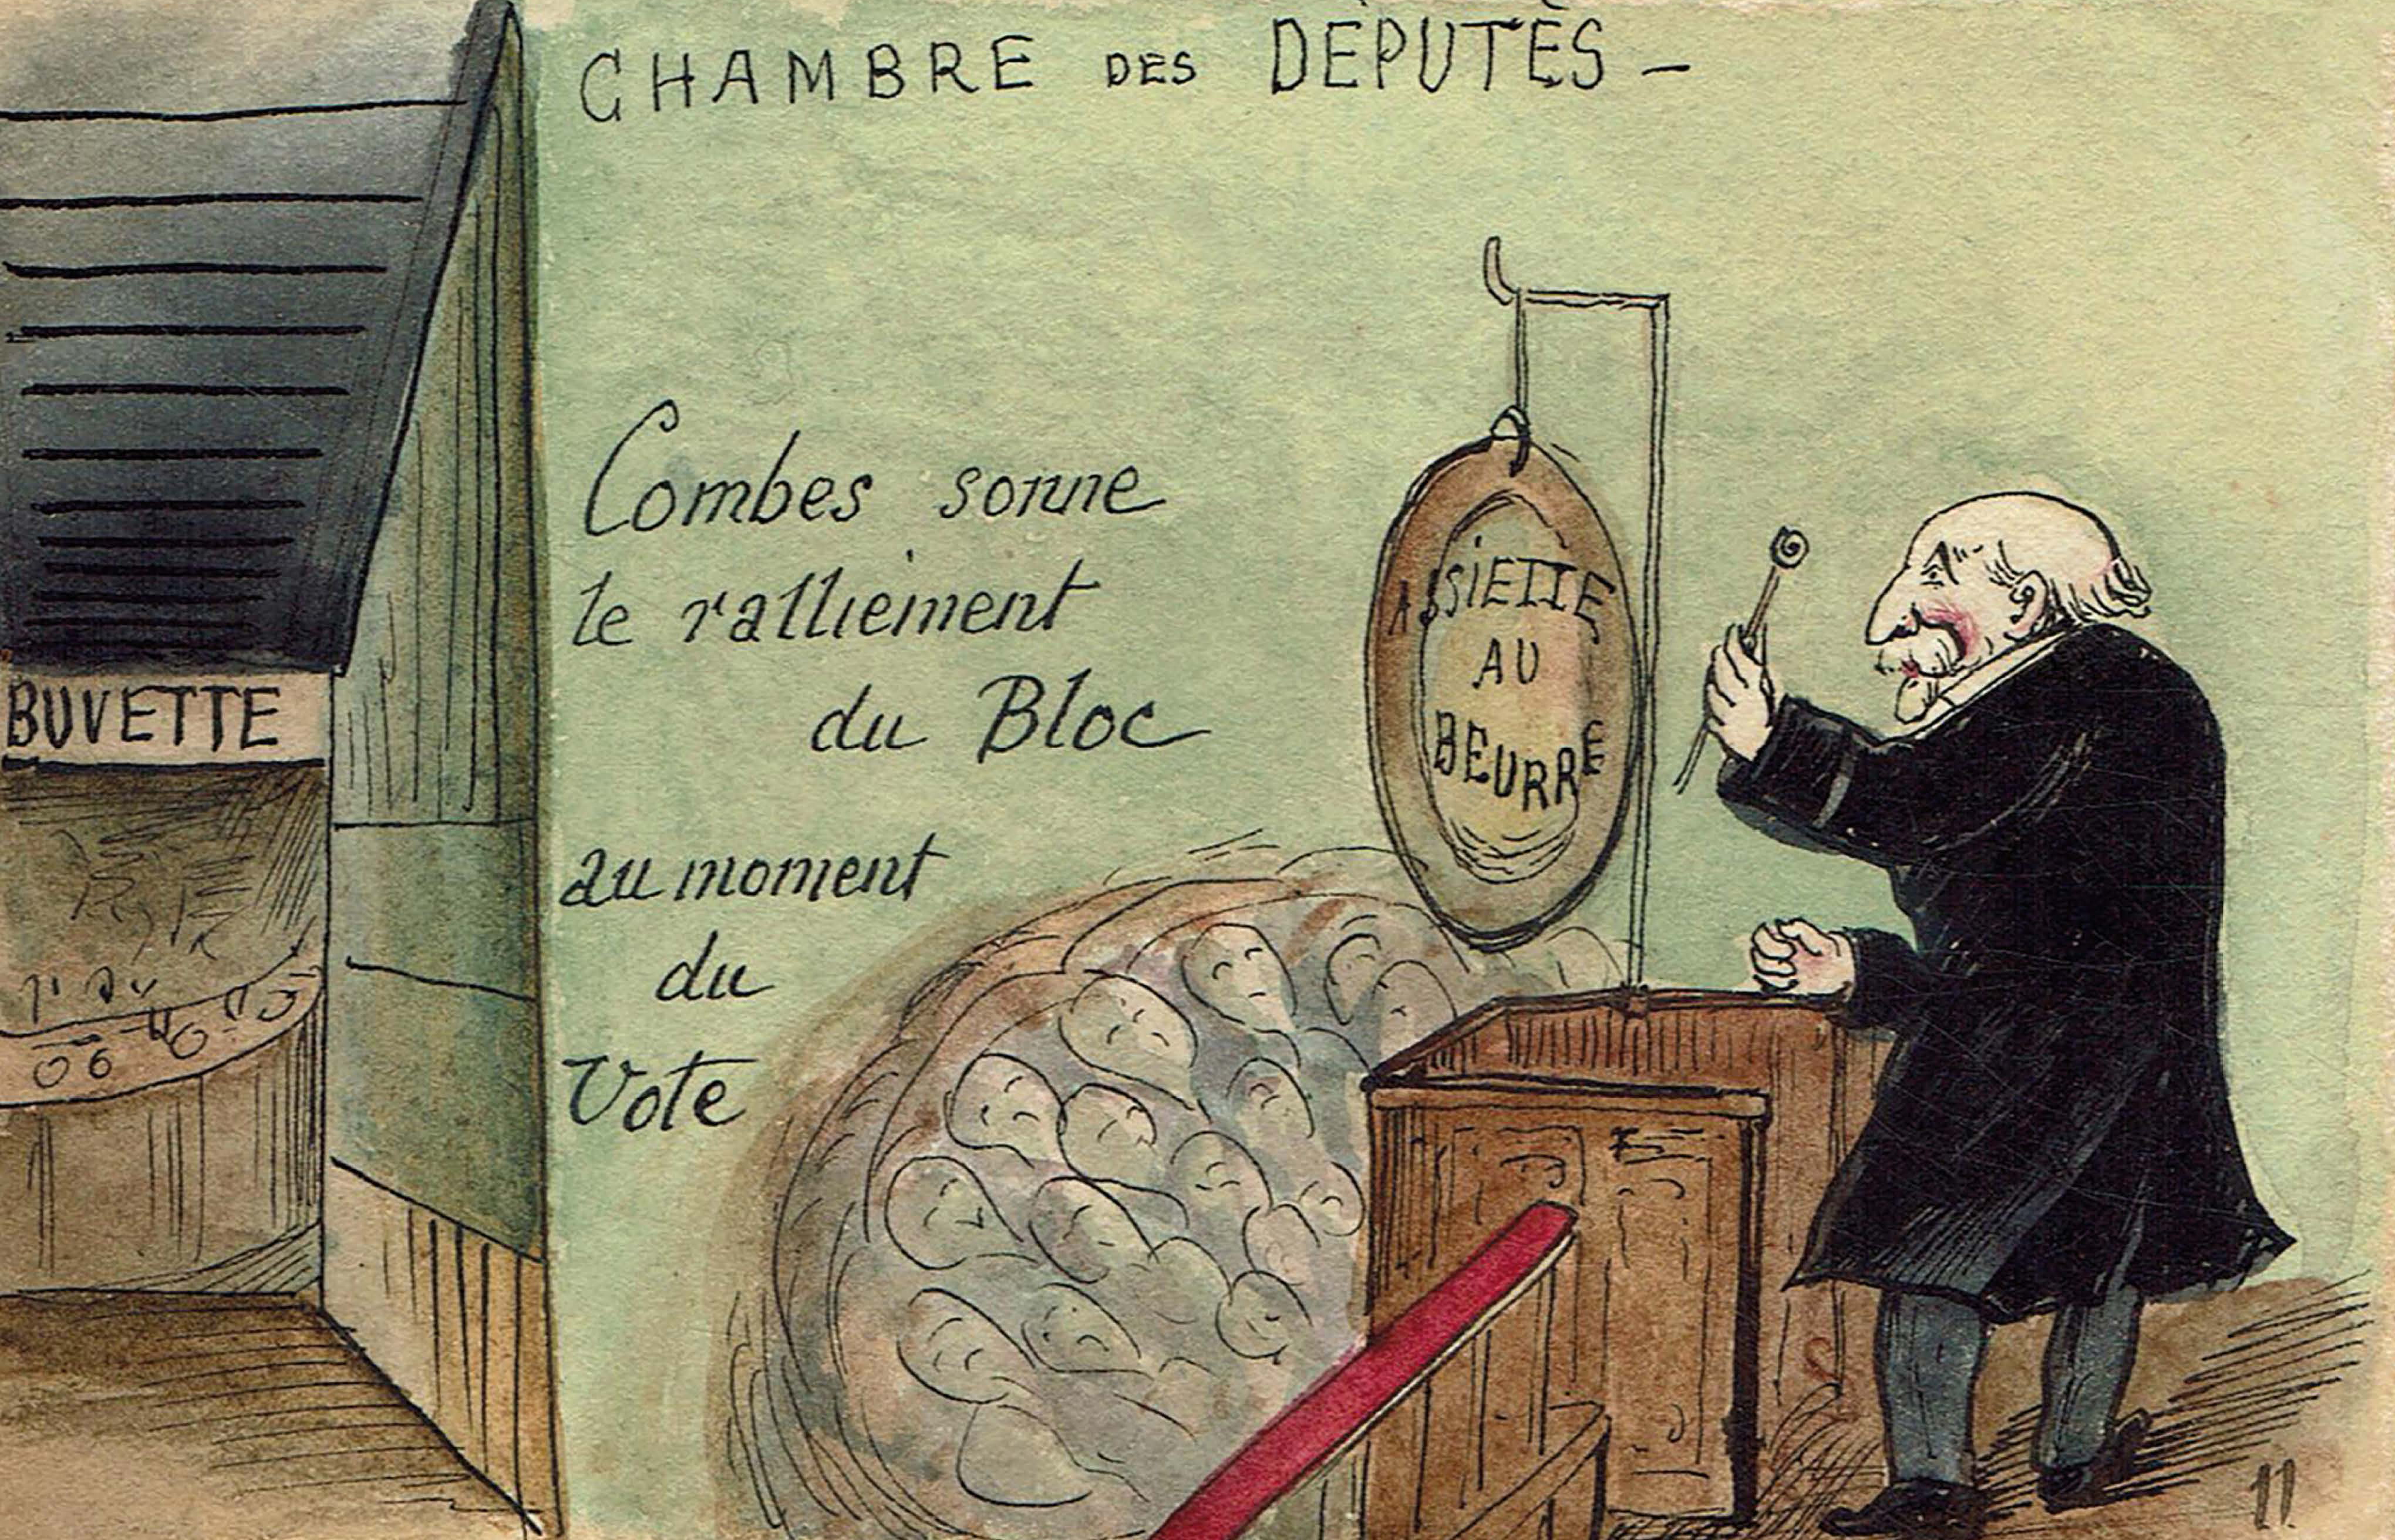 CHAMBRE DES DÉPUTÉS -
Combes sonne
le ralliement
du Bloc
au moment
du
Vote
BUVETTE
ASSIETTE
AU
BEURRE
11